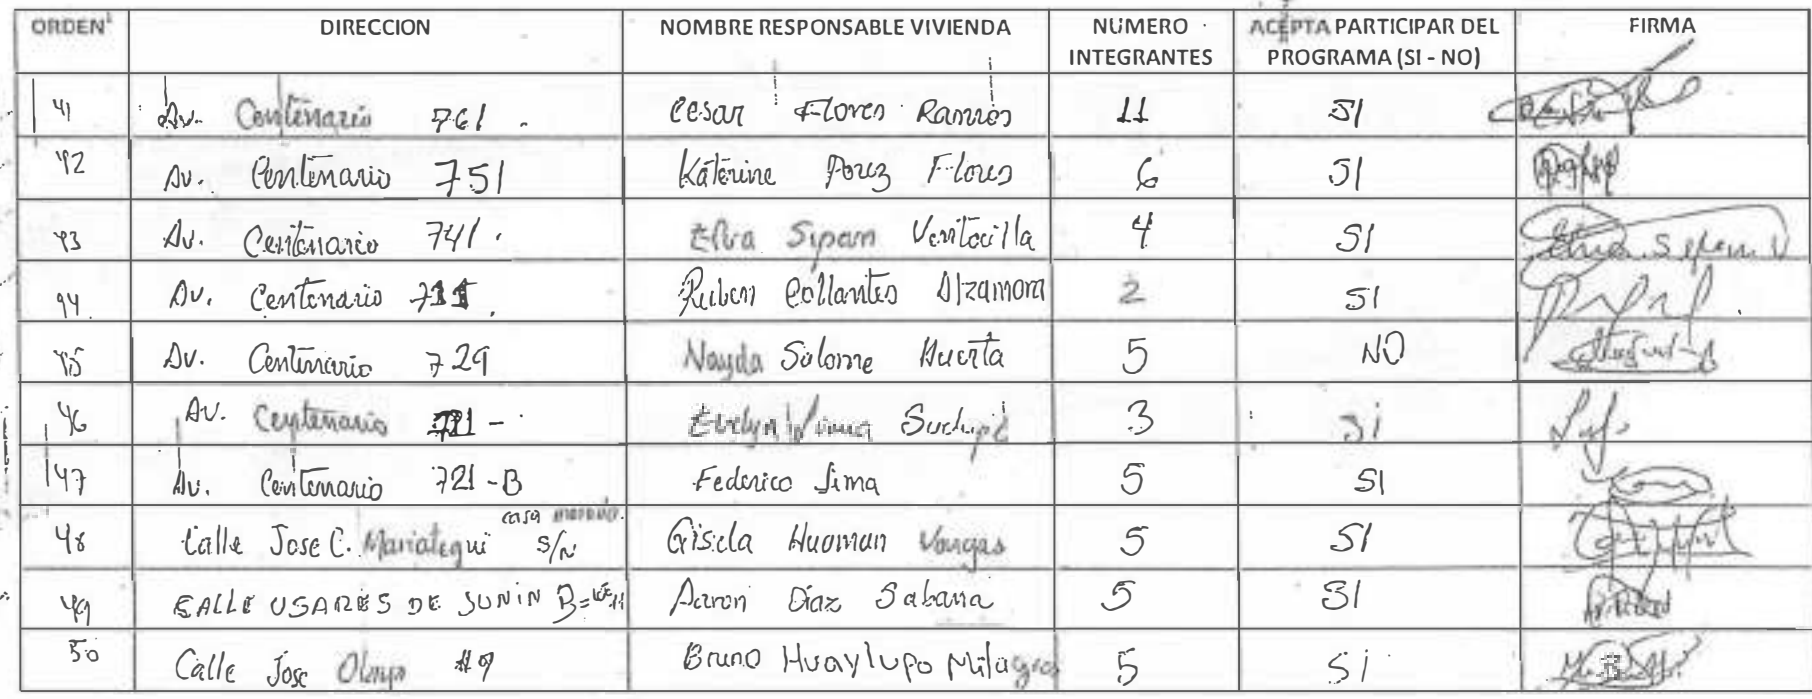 ORDEN DIRECCION NOMBRE RESPONSABLE VIVIENDA NUMERO INTEGRANTES ACEPTA PARTICIPAR DEL PROGRAMA (SI - NO) FIRMA
41 Av. Centenario 761 . Cesar Flores Ramos 11 SI
42 Av. Centenario 751 Katerine Perez Flores 6 SI
43 Av. Centenario 741 . Elva Sipan Ventocilla 4 SI
44 Av. Centenario Ruben Collantes Alzamora 2 SI
45 Av. Centenario 729 Nayda Solome Huerta 5 NO
46 Av. Centenario 721 - Evelyn 3 Si
47 Av. Centenario 721-B Federico Lima 5 SI
48 Calle Jose C. Mariategui casa S/N Gisela Huaman Vargas 5 SI
49 CALLE USARES DE JUNIN Aaron Diaz Sabana 5 SI
50 Calle Jose Olaya #9 Bruno Huaylupo Milagro 5 Si